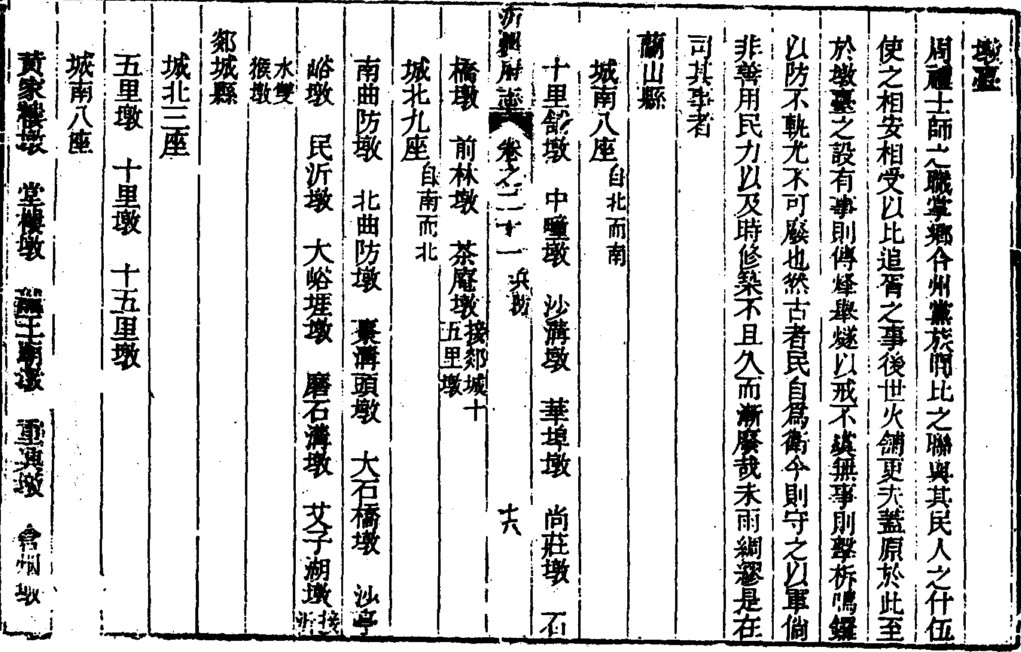 墩臺
周禮士師之職掌鄉合州黨族閭比之聯與其民人之什伍
使之相安相受以比追胥之事後世火舖更夫蓋原於此至
於墩臺之設有事則傳烽舉燧以戒不虞無事則擊柝鳴鑼
以防不軌尤不可廢也然古者民自爲衛今則守之以軍倘
非善用民力以及時修築不且久而漸廢哉未雨綢繆是在
司其事者
蘭山縣
城南八座自北而南
十里舖墩 中疃墩 沙溝墩 華埠墩 尚莊墩 石
沂州府志 卷之二十一 兵防 十六
橋墩 前林墩 茶庵墩接郯城十五里墩
城北九座自南而北
南曲防墩 北曲防墩 棗溝頭墩 大石橋墩 沙亭
峪墩 民沂墩 大峪堐墩 磨石溝墩 艾子湖墩接沂
水雙猴墩
郯城縣
城北三座
五里墩 十里墩 十五里墩
城南八座
黃家樓墩 堂樓墩 王廟墩 重興墩 墩